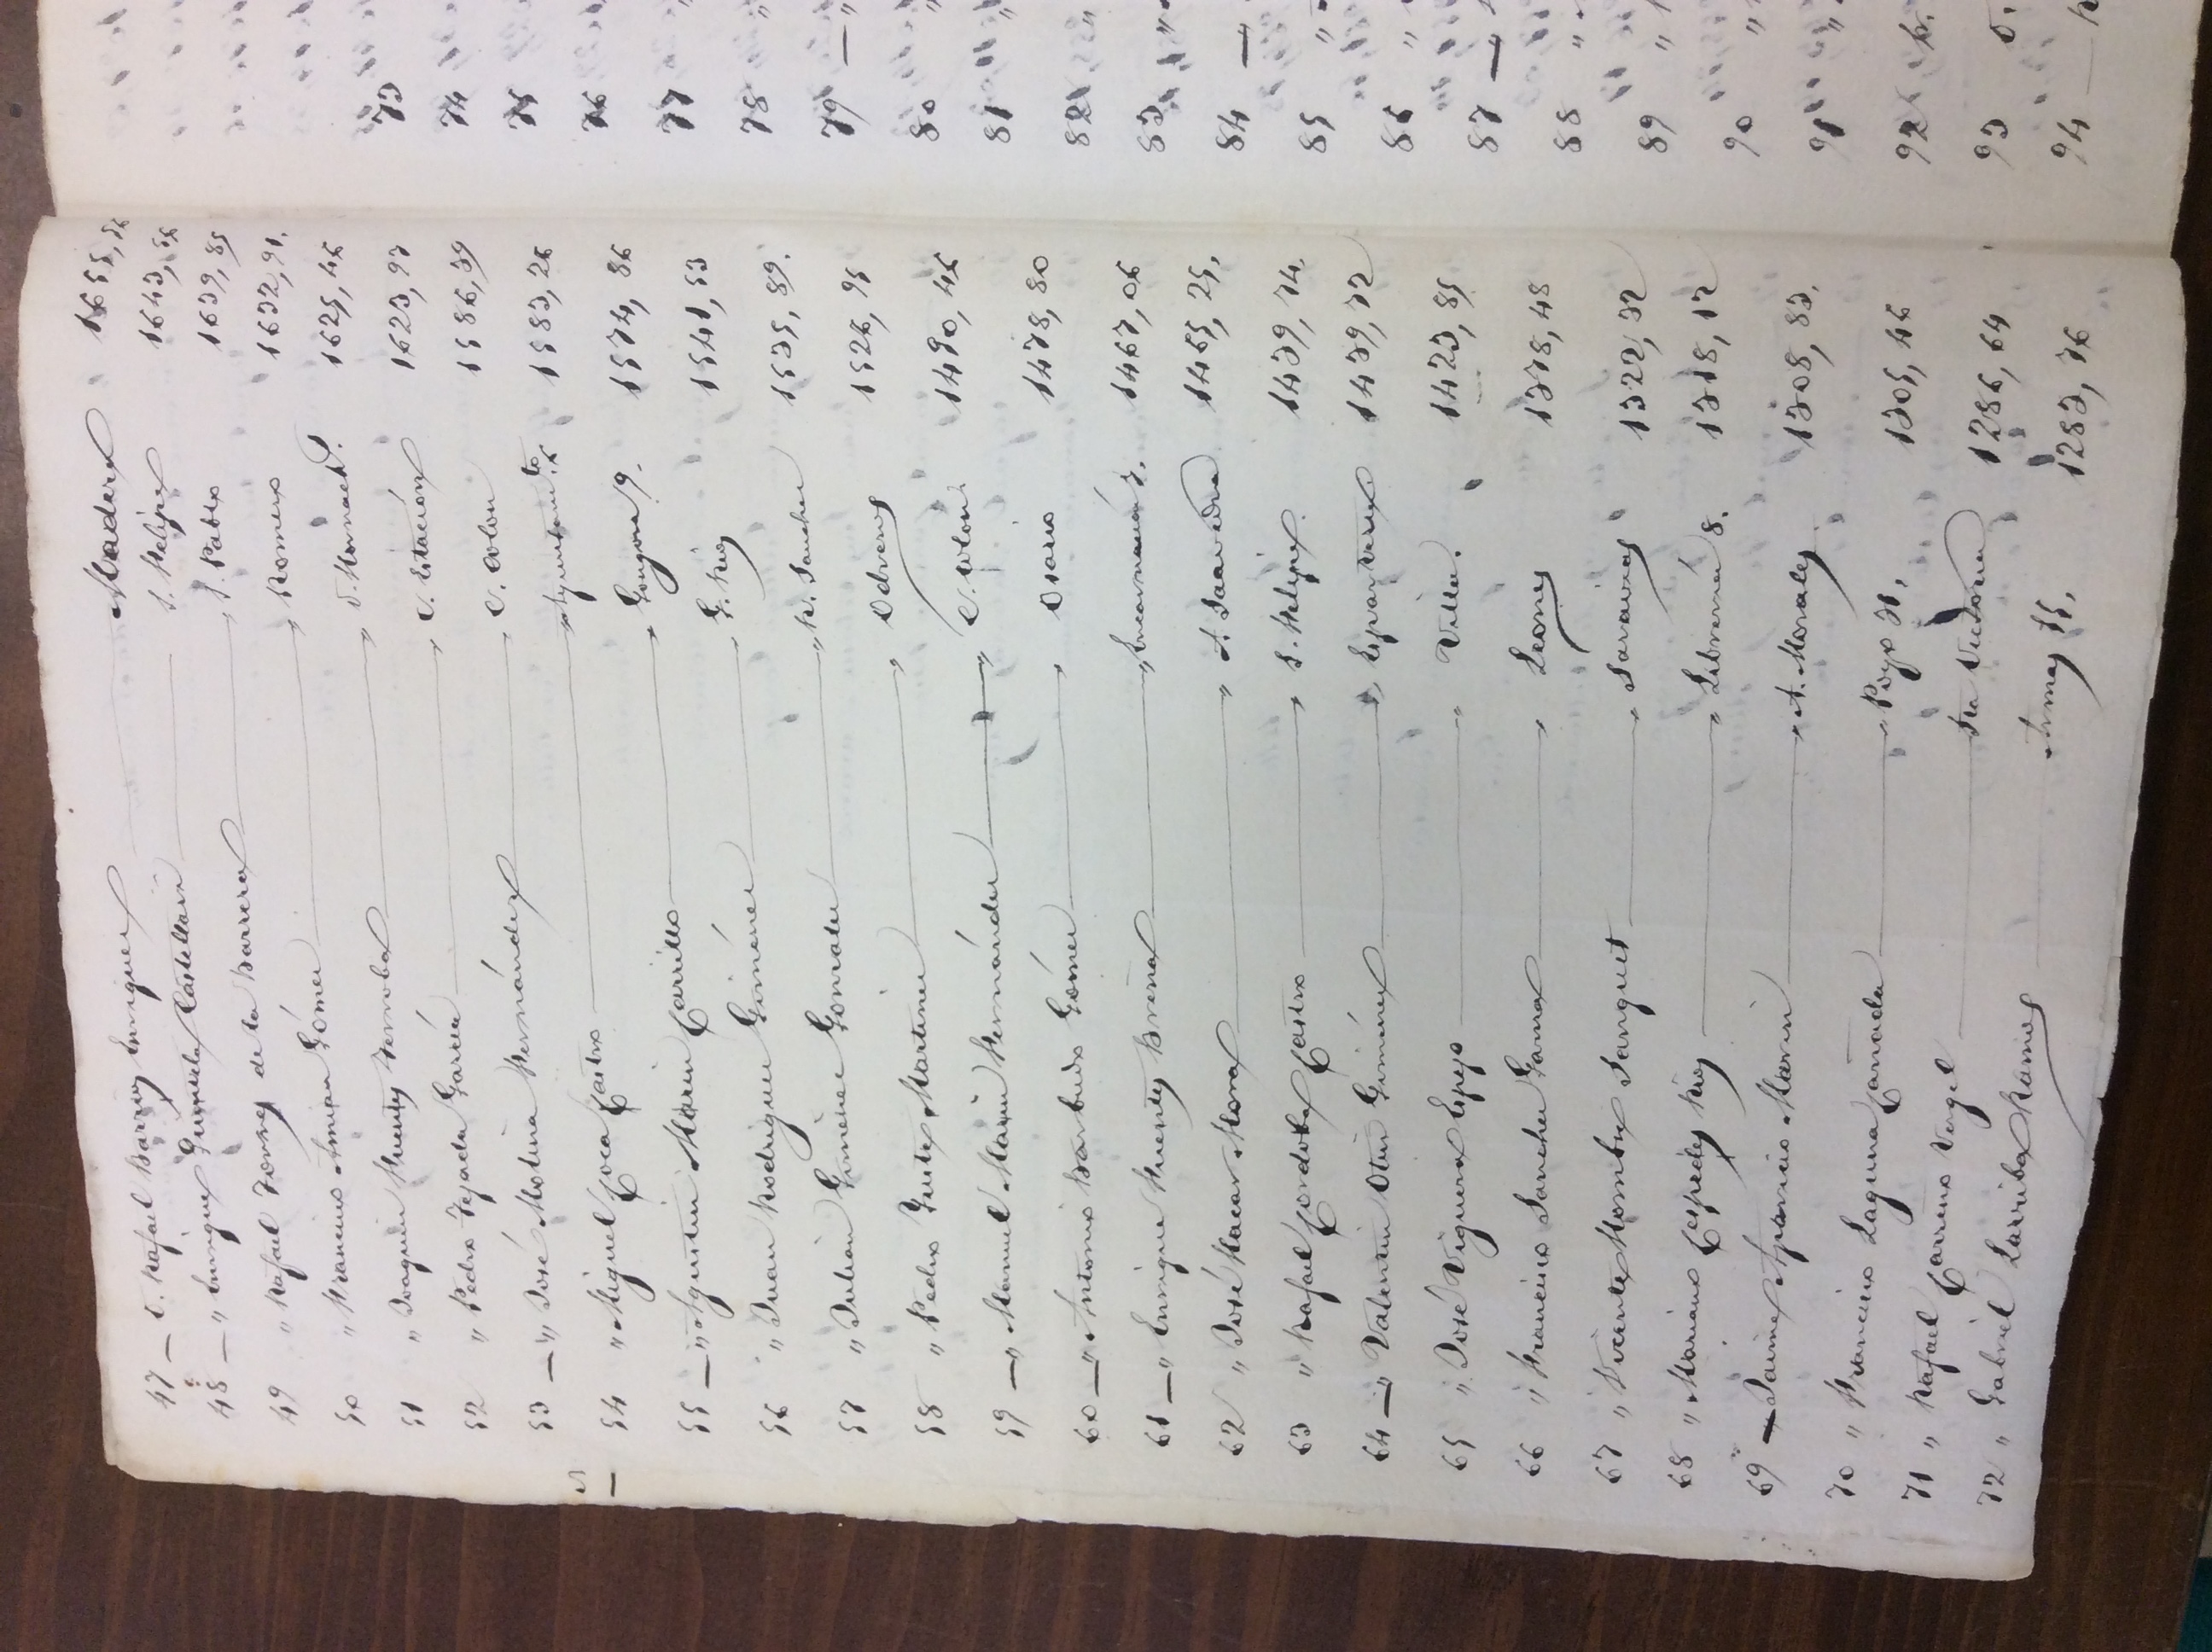 47 — D. Rafael Barrios Enriquez Madera 1655,56
48 — " Enrique Quemada Castellano S. Felipe 1643,56
49 " Rafael Torres de la Barrera " S. Pablo 1639,85
50 " Francisco Amian Gómez " Romero 1632,91.
51 " Joaquin Fuentes Terroba " 1625,46
52 " Pedro Tejada Garcia " C. Estación 1623,97
53 — " José Molina Fernández " C. Colon 1586,39
54 " Miguel Coca Castro " Ayuntamto. 1583,26
55 — " Agustin Marin Carrillo " Gongora 9. 1574,86
56 " Juan Rodriguez Giménez " G. Rios 1541,53
57 " Julian Giménez Gonzalez " Sanchez 1535,89.
58 " Pedro Martinez " Odreros 1526,95
59 — " Manuel Marin Fernández " C. Colon 1490,46
60 — " Antonio Barbudo Gómez " Osario 1478,80
61 — " Enrique Fuentes Breñosa " Encarnación 1467,06
62 " José Macar Mora " A. Saavedra 1465,25.
63 " Rafael Cordoba Castro " S. Felipe 1439,74.
64 — " Valentin Otin Giménez " Espartero 1439,72
65 " José Viguera Espejo " Villa. 1423,85
66 " Francisco Sanchez Gama " Leones 1378,48
67 " Vicente Mombrú Sanguet " Saravias 1322,32
68 " Mariano Cespedes Rios " Libreria 8. 1318,12
69 — " Jaime Aparicio Marin " A. Morales 1308,83.
70 " Francisco Laguna Cañada " Poyo 1305,46
71 " Rafael Carreño Vergel Sta Victoria 1286,64
72 " Gabriel Larriba Ramos Armas 1283,76
73
74
75
76
77
78
79 — "
80
81 "
82 "
83 "
84 — "
85 "
86 "
87 — "
88 "
89 "
90 "
91 "
92
93 D.
94 —